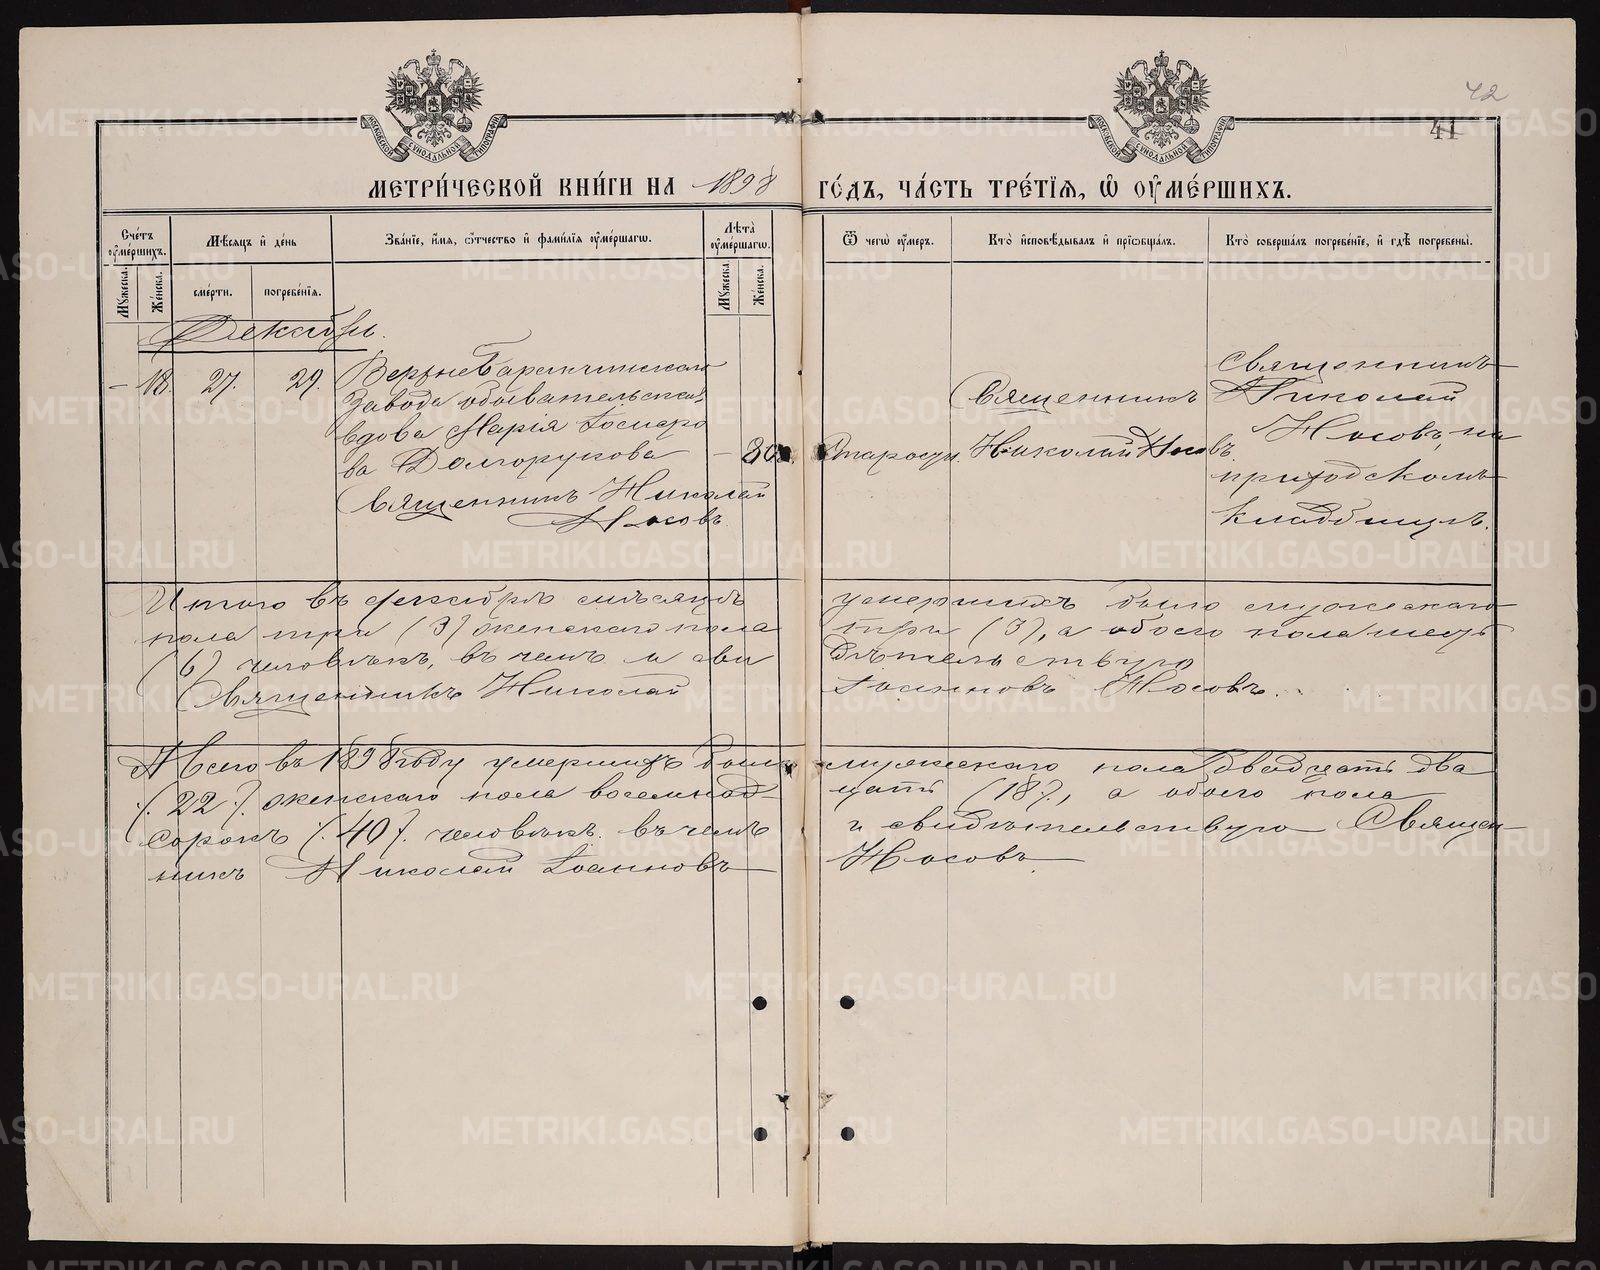 42
41
МЕТРИ́ЧЕСКОЙ КНИ́ГИ НА 1898 ГО́ДЪ, ЧА́СТЬ ТРЕ́ТІѦ, Ѽ ОУМЕ́РШИХЪ.
Сче́тъ оуме́ршихъ.
Мѣ́сяцъ и҆ де́нь
Зва́нїе, и҆́мя, ѻ҆́тчество и҆ фами́лїя оуме́ршагѡ.
Лѣ́та оуме́ршагѡ.
Ѿ чегѡ̀ оу́меръ.
Кто̀ и҆сповѣ́дывалъ и҆ прїѡбща́лъ.
Кто̀ соверша́лъ погребе́нїе, и҆ гдѣ̀ погребены̀.
Мꙋ́жеска.
Же́нска.
сме́рти.
погребе́нїѧ.
Мꙋ́жеска.
Же́нска.
Декабрь.
– 18. 27. 29.
Верхнебаранчинскаго
Завода обывательская
вдова Марія Госпаро
ва Долгорукова
Священникъ Николай
Носовъ
– 80
Старости.
Священникъ
Николай Носовъ
Священникъ
Николай
Носовъ, на
приходскомъ
кладбищѣ.
Итого въ декабрѣ мѣсяцѣ умершихъ было мужескаго
пола три (3) женскаго пола три (3), а обоего пола шесть
(6) человѣкъ, въ чемъ и свидѣтельствую
Священникъ Николай Іоанновъ Носовъ.
А Всего въ 1898 году умершихъ было мужескаго пола двадцать два
(22). женскаго пола восемнадцать (18), а обоего пола
сорокъ (40). человѣкъ. въ чемъ и свидѣтельствую Священ
никъ Николай Іоанновъ Носовъ.
METRIKI.GASO-URAL.RU